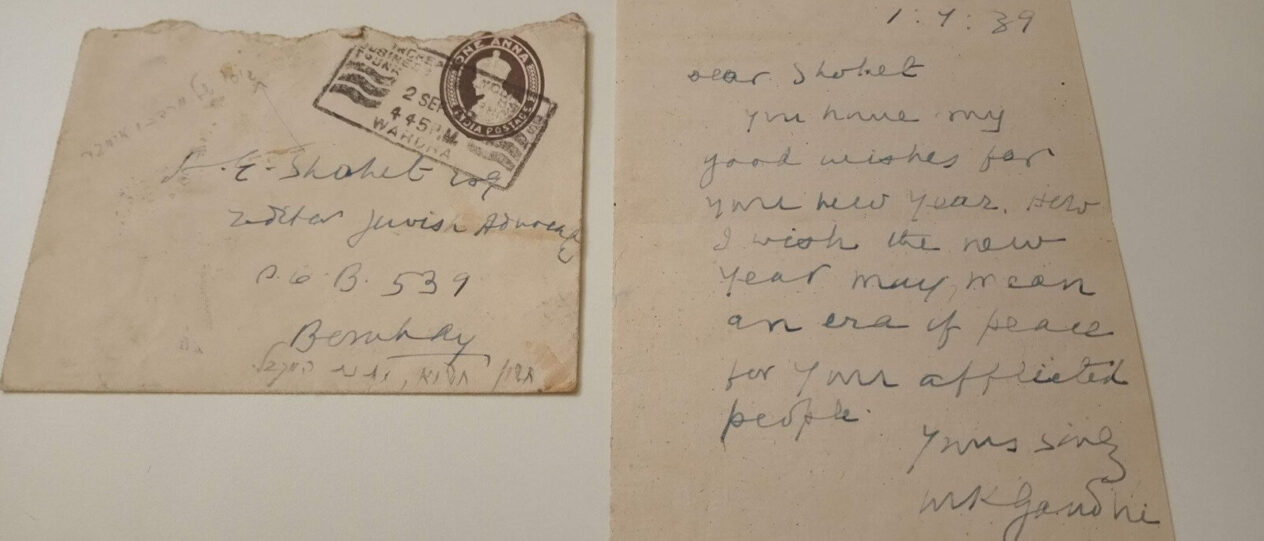 ONE ANNA
INDIA POSTAGE
INCREA
BUSINESS
2 SEP
4 45 P.M.
WARDHA
A. E. Shohet Esq
Editor Jewish Advocate
P. O. B. 539
Bombay
1. 9. 39
Dear Shohet
You have my
good wishes for
your new year. How
I wish the new
year may mean
an era of peace
for your afflicted
people.
Yours sincly
MKGandhi